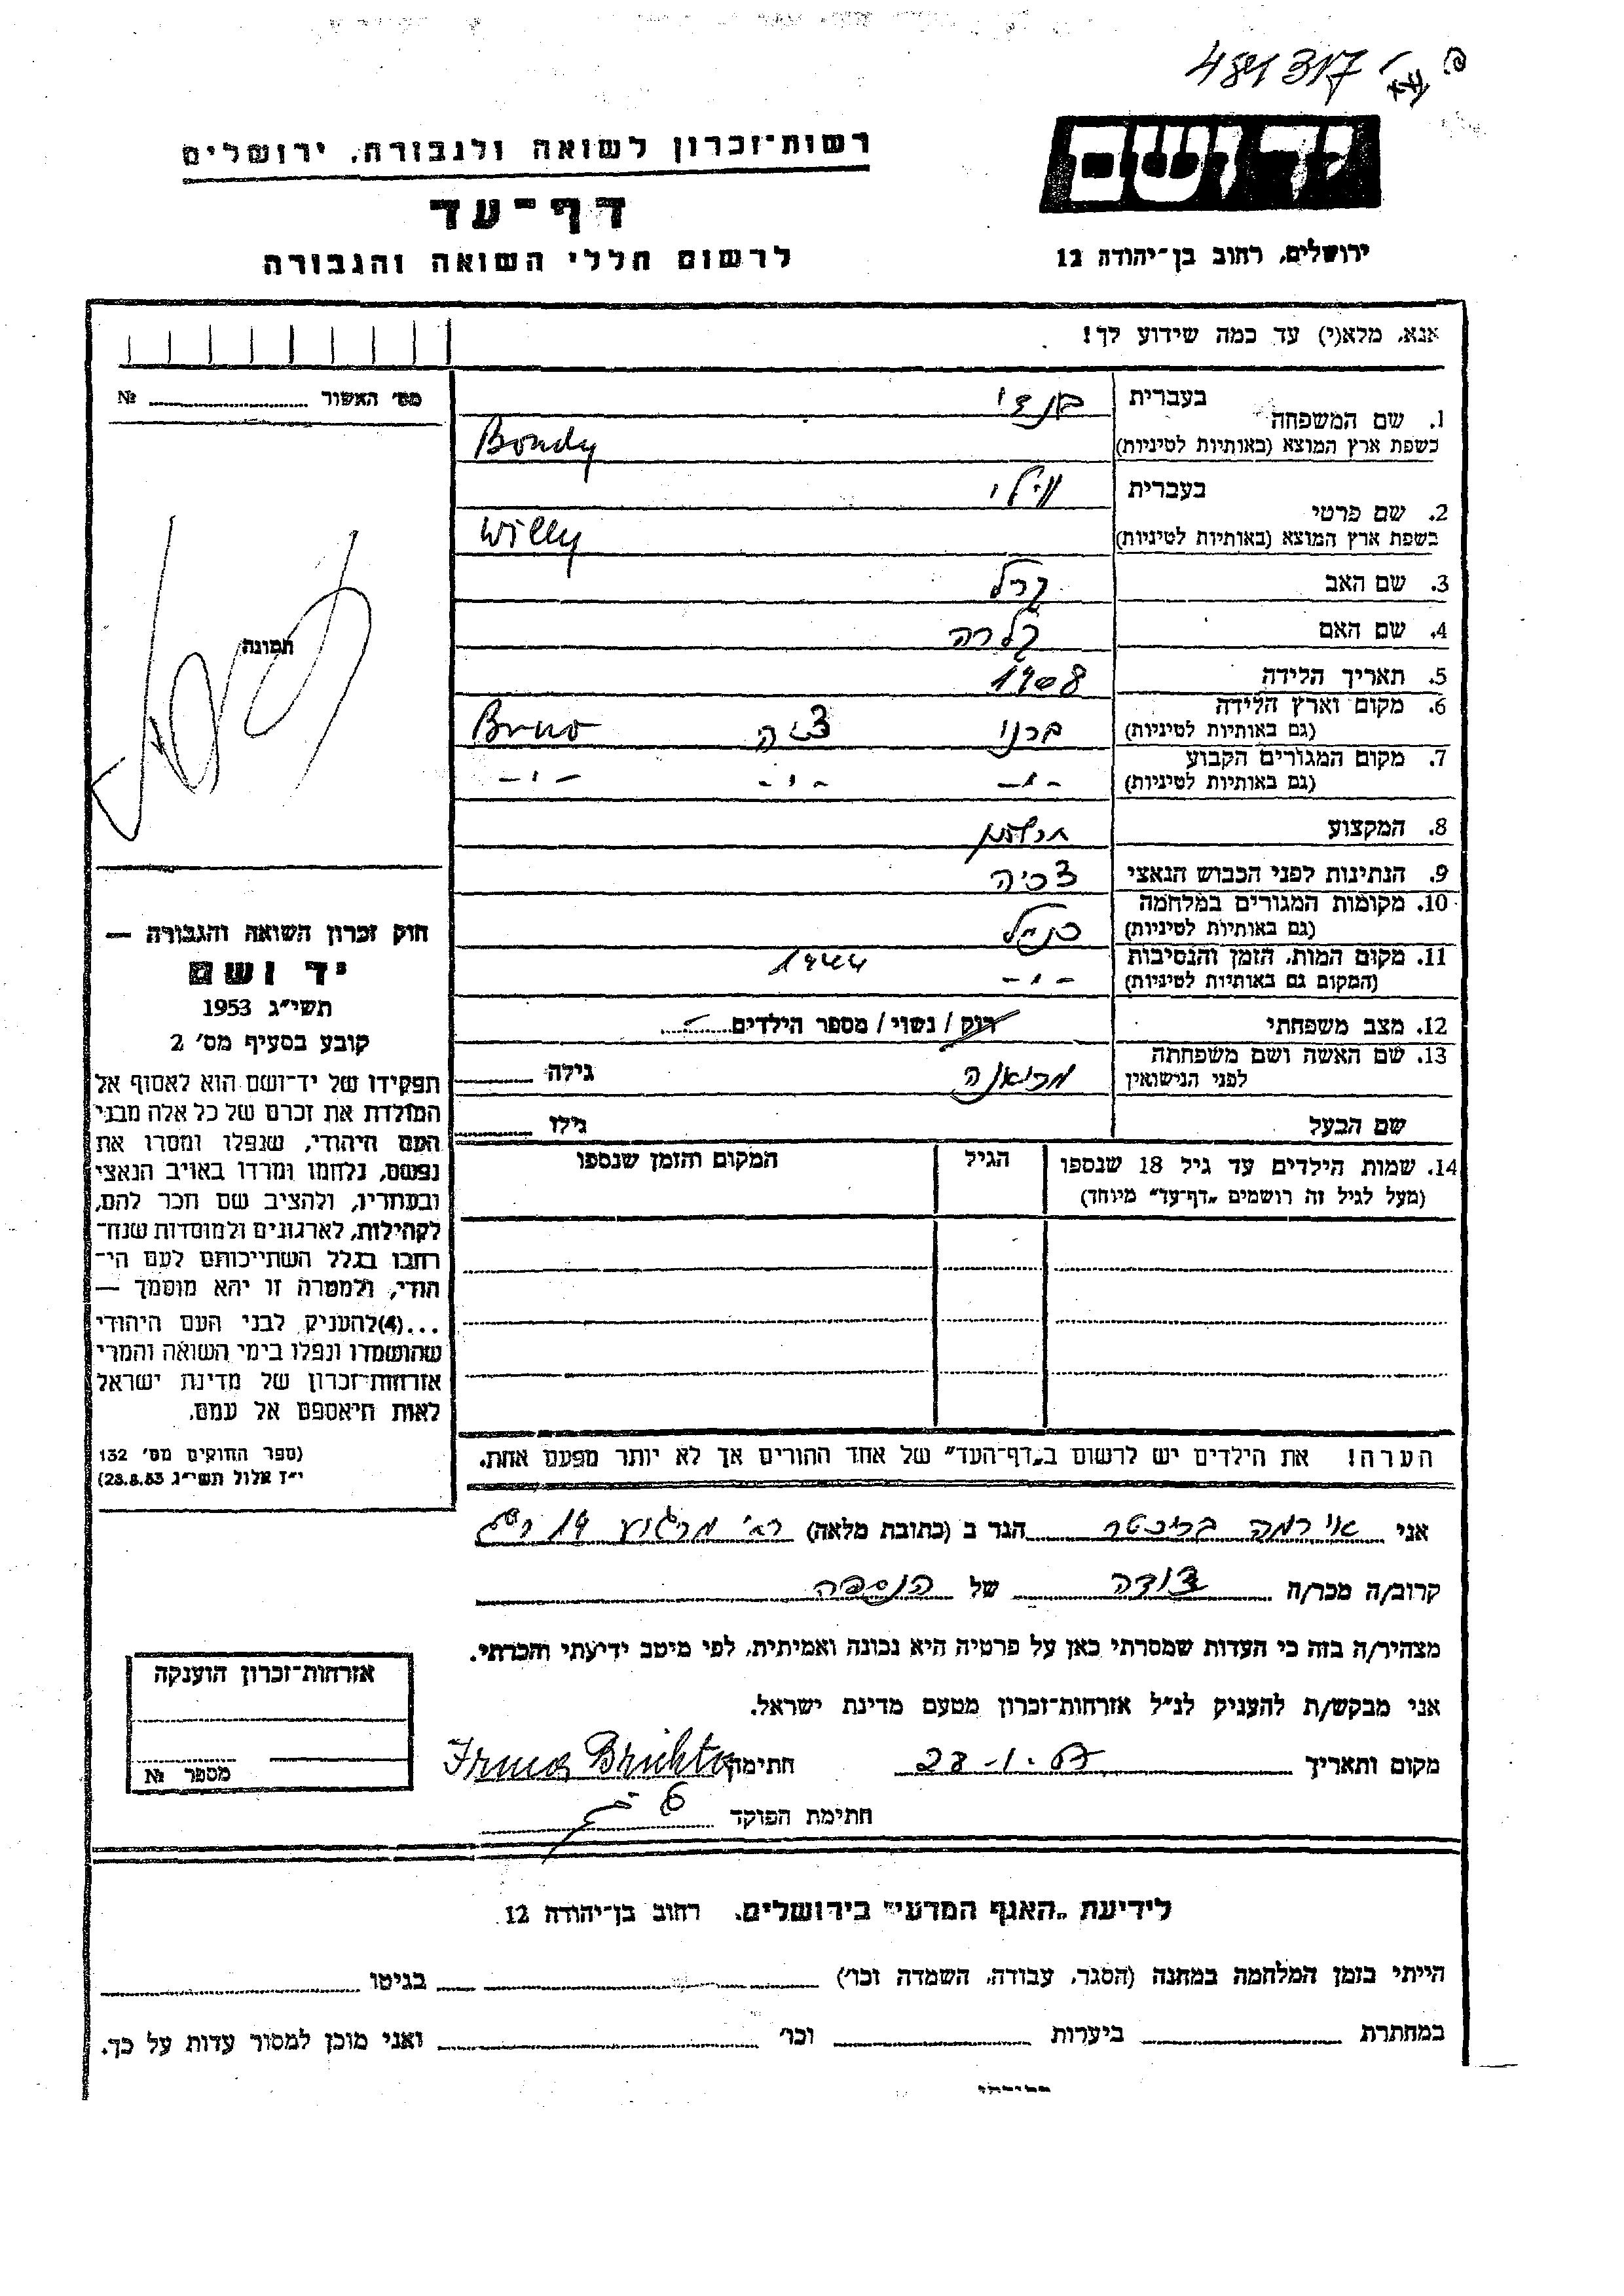 481317
יד ושם
רשות־זכרון לשואה ולגבורה, ירושלים
דף־עד
לרשום חללי השואה והגבורה
ירושלים, רחוב בן־יהודה 12
אנא, מלא(י) עד כמה שידוע לך!
מס׳ האשור №
1. שם המשפחה
בעברית בונדי
בשפת ארץ המוצא (באותיות לטיניות) Bondy
2. שם פרטי
בעברית וילי
בשפת ארץ המוצא (באותיות לטיניות) Willy
3. שם האב קרל
4. שם האם קלרה
5. תאריך הלידה 1908
6. מקום וארץ הלידה
(גם באותיות לטיניות) ברנו Bruno
7. מקום המגורים הקבוע
(גם באותיות לטיניות) -״- -״- -״-
8. המקצוע
9. הנתינות לפני הכבוש הנאצי צ'כיה
10. מקומות המגורים במלחמה
(גם באותיות לטיניות)
11. מקום המות, הזמן והנסיבות 1944
(המקום גם באותיות לטיניות) -״-
12. מצב משפחתי רוק / נשוי / מספר הילדים
13. שם האשה ושם משפחתה
לפני הנישואין מריאנה גילה
שם הבעל גילו
14. שמות הילדים עד גיל 18 שנספו הגיל המקום והזמן שנספו
(מעל לגיל זה רושמים „דף־עד״ מיוחד)
הערה! את הילדים יש לרשום ב„דף־העד״ של אחד ההורים אך לא יותר מפעם אחת.
תמונה
חוק זכרון השואה והגבורה —
יד ושם
תשי״ג 1953
קובע בסעיף מס׳ 2
תפקידו של יד־ושם הוא לאסוף אל
המולדת את זכרם של כל אלה מבני
העם היהודי, שנפלו ומסרו את
נפשם, נלחמו ומרדו באויב הנאצי
ובעוזריו, ולהציב שם וזכר להם,
לקהילות, לארגונים ולמוסדות שנח־
רבו בגלל השתייכותם לעם הי־
הודי, ולמטרה זו יהא מוסמך —
...(4)להעניק לבני העם היהודי
שהושמדו ונפלו בימי השואה והמרי
אזרחות־זכרון של מדינת ישראל
לאות היאספם אל עמם.
(ספר החוקים מס׳ 132
י״ז אלול תשי״ג 28.8.53)
אני אירמה בריכטר הגר ב (כתובת מלאה) רח׳ מרגוע 19
קרוב/ה מכר/ה דודה של הנספה
מצהיר/ה בזה כי העדות שמסרתי כאן על פרטיה היא נכונה ואמיתית, לפי מיטב ידיעתי והכרתי.
אני מבקש/ת להעניק לנ״ל אזרחות־זכרון מטעם מדינת ישראל.
מקום ותאריך חתימה Irma
חתימת הפוקד
אזרחות־זכרון הוענקה
מספר №
לידיעת „האגף המדעי״ בירושלים, רחוב בן־יהודה 12
הייתי בזמן המלחמה במחנה (הסגר, עבודה, השמדה וכו׳) בגיטו
במחתרת ביערות וכו׳ ואני מוכן למסור עדות על כך.